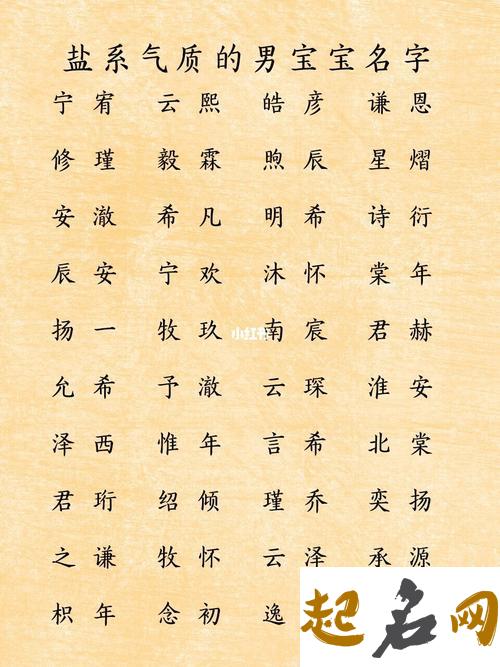 盐系气质的男宝宝名字
宁宥 云熙 皓彦 谦恩
修瑾 毅霖 煦辰 星熠
安澈 希凡 明希 诗衍
辰安 宁欢 沐怀 棠年
扬一 牧玖 南宸 君赫
小红书
允希 予澈 云琛 淮安
泽西 惟年 言希 北棠
君珩 绍倾 瑾乔 奕扬
之谦 牧怀 云泽 承源
枳年 念初 逸
起名网